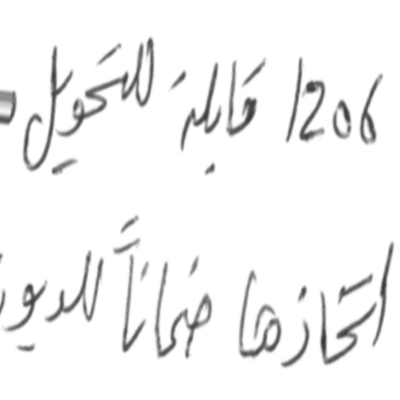 1206 قابلة للتحويل
اتخازها ضماناً للديو